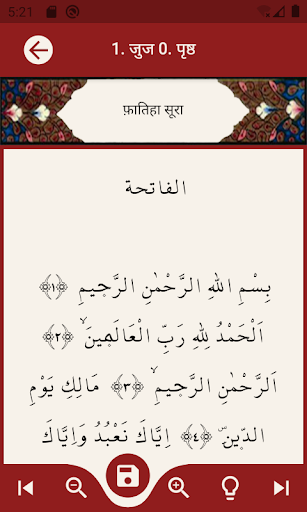 5:21
1. जुज 0. पृष्ठ
फ़ातिहा सूरा
الفاتحة
بِسْمِ اللهِ الرَّحْمٰنِ الرَّحٖيمِ ﴿١﴾
اَلْحَمْدُ لِلّٰهِ رَبِّ الْعَالَمٖينَۙ ﴿٢﴾
اَلرَّحْمٰنِ الرَّحٖيمِۙ ﴿٣﴾ مَالِكِ يَوْمِ
الدّٖينِؕ ﴿٤﴾ اِيَّاكَ نَعْبُدُ وَاِيَّاكَ